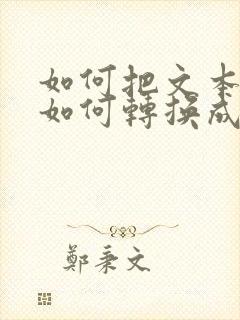 如何把文本
如何轉換成
鄭秉文